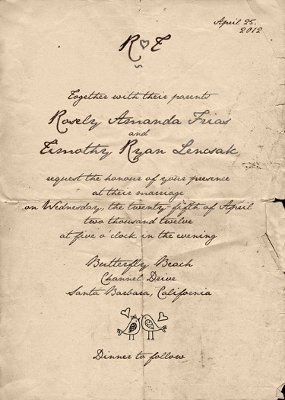 April 25.
2012
R♡T
Together with their parents
Rosely Amanda Frias
and
Timothy Ryan Lencsak
request the honour of your presence
at their marriage
on Wednesday, the twenty fifth of April
two thousand twelve
at five o'clock in the evening
Butterfly Beach
Channel Drive
Santa Barbara, California
Dinner to follow